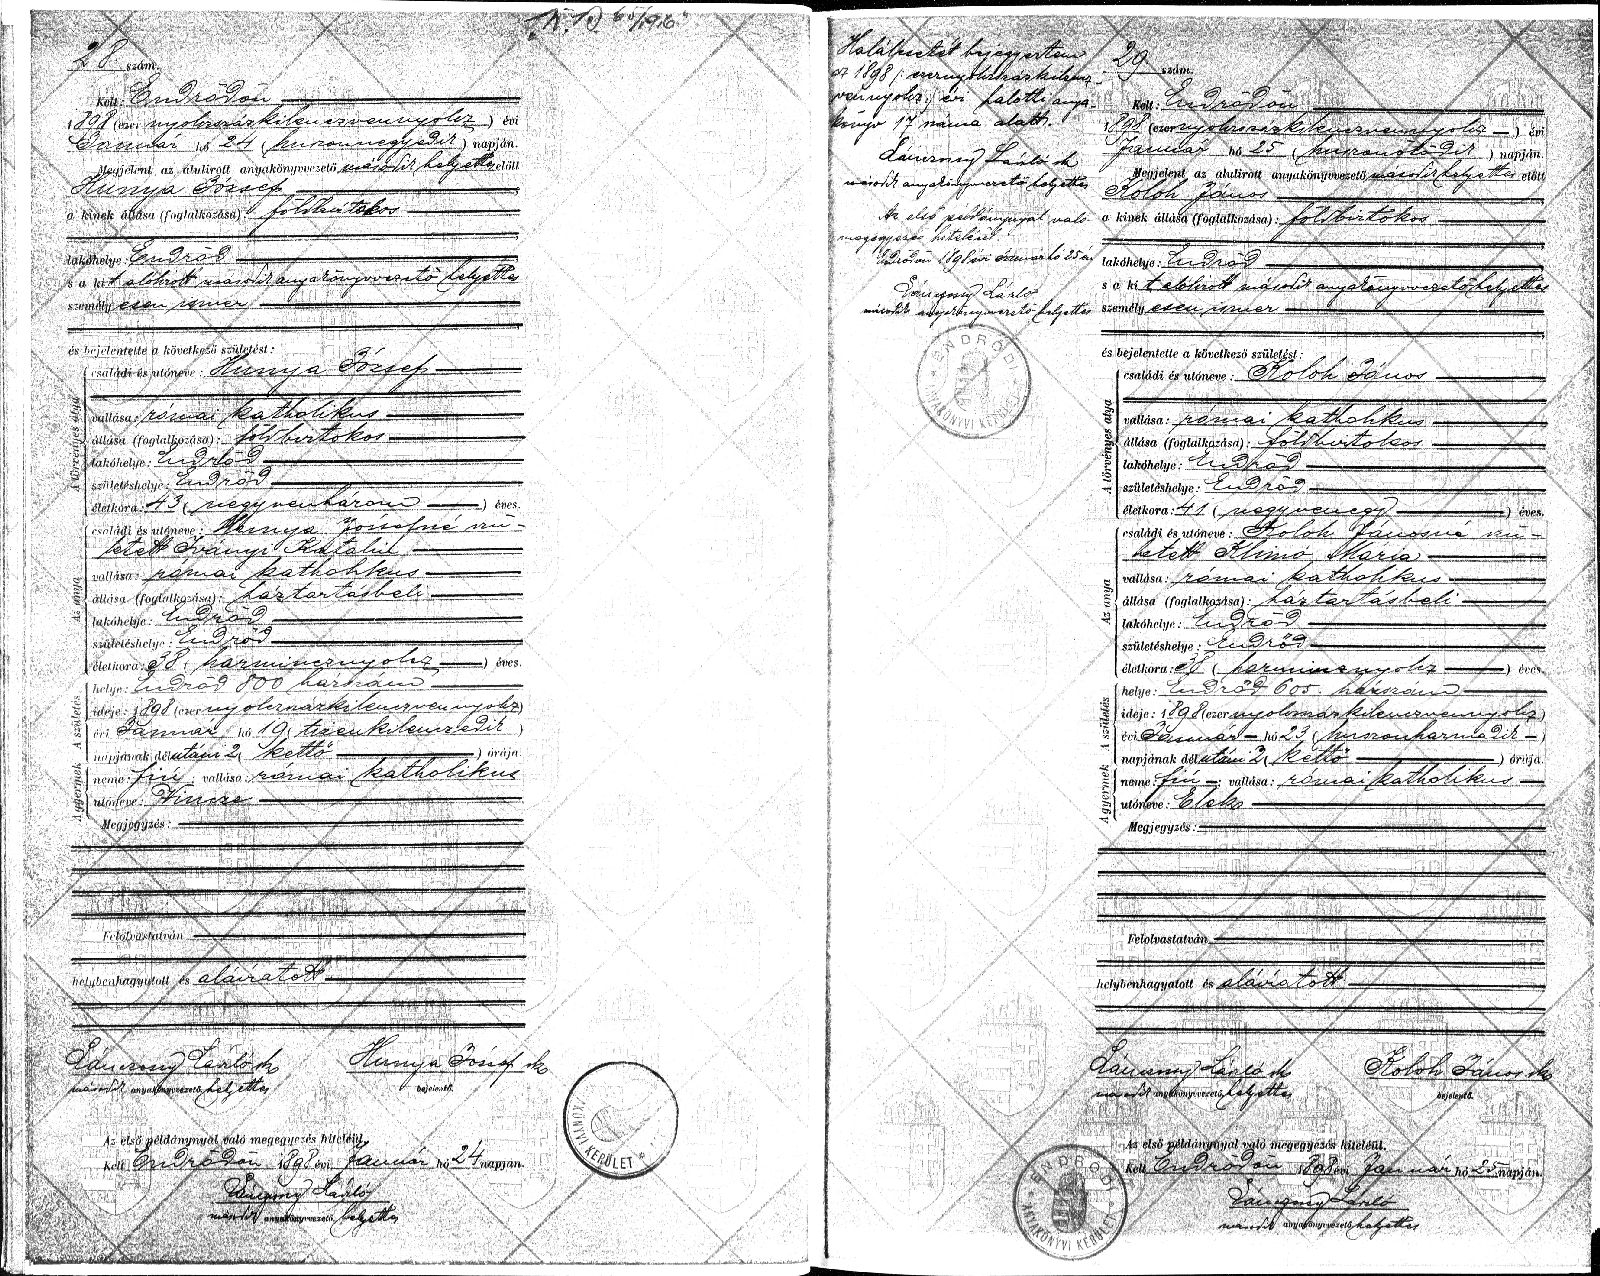 28 szám.
Kelt: Endrődön
1898 (ezer nyolcszázkilencvennyolcz) évi
Január hó 24 (huszonnegyedik) napján.
Megjelent az alulirott anyakönyvvezető második helyettes előtt
Hunya József
a kinek állása (foglalkozása): földbirtokos
lakóhelye Endrőd
s a kit alólirott második anyakönyvvezető helyettes
személyesen ismer
és bejelentette a következő születést:
A törvényes atya
családi és utóneve: Hunya József
vallása: római katholikus
állása (foglalkozása): földbirtokos
lakóhelye: Endrőd
születéshelye: Endrőd
életkora: 43 (negyvenhárom) éves.
Az anya
családi és utóneve: Hunya Józsefné szü-
letett Iványi Katalin
vallása: római katholikus
állása (foglalkozása): háztartásbeli
lakóhelye: Endrőd
születéshelye: Endrőd
életkora: 38 (harmincznyolcz) éves.
A születés
helye: Endrőd 800 házszám
ideje: 1898 (ezer nyolczszázkilenczvennyolcz)
évi Január hó 19 (tizenkilenczedik)
napjának délutáni 2 (kettő) órája.
A gyermek
neme: fiú; vallása: római katholikus
utóneve: Vincze
Megjegyzés:
Felolvastatván
helybenhagyatott és aláiratott
László sk Hunya József sk
második anyakönyvvezető helyettes bejelentő.
Az első példánynyal való megegyezés hiteléül.
Kelt Endrődön 1898 évi Január hó 24 napján.
László
második anyakönyvvezető helyettes
KÖNYVI KERÜLET
Halálesetét bejegyeztem
az 1898 (ezernyolczszázkilencz-
vennyolcz) évi halotti anya-
könyv 17 száma alatt.
László sk
második anyakönyvvezető helyettes
Az első példánynyal való
megegyezés hiteléül.
Endrődön 1898 évi Január hó 25 én
László
második anyakönyvvezető helyettes
ENDRŐDI ANYAKÖNYVI KERÜLET
29 szám.
Kelt: Endrődön
1898 (ezer nyolczszázkilenczvennyolcz) évi
Január hó 25 (huszonötödik) napján.
Megjelent az alulirott anyakönyvvezető második helyettes előtt
Koloh János
a kinek állása (foglalkozása): földbirtokos
lakóhelye: Endrőd
s a kit alólirott második anyakönyvvezető helyettes
személyesen ismer
és bejelentette a következő születést:
A törvényes atya
családi és utóneve: Koloh János
vallása: római katholikus
állása (foglalkozása): földbirtokos
lakóhelye: Endrőd
születéshelye: Endrőd
életkora: 41 (negyvenegy) éves.
Az anya
családi és utóneve: Koloh Jánosné szü-
letett Klimó Mária
vallása: római katholikus
állása (foglalkozása): háztartásbeli
lakóhelye: Endrőd
születéshelye: Endrőd
életkora: 38 (harmincznyolcz) éves.
A születés
helye: Endrőd 605 házszám
ideje: 1898 (ezer nyolczszázkilenczvennyolcz)
évi Január hó 23 (huszonharmadik)
napjának délutáni 2 (kettő) órája.
A gyermek
neme: fiú; vallása: római katholikus
utóneve: Elek
Megjegyzés:
Felolvastatván
helybenhagyatott és aláiratott
László sk Koloh János sk
második anyakönyvvezető helyettes bejelentő.
Az első példánynyal való megegyezés hiteléül.
Kelt Endrődön 1898 évi Január hó 25 napján.
László
második anyakönyvvezető helyettes
ENDRŐDI ANYAKÖNYVI KERÜLET